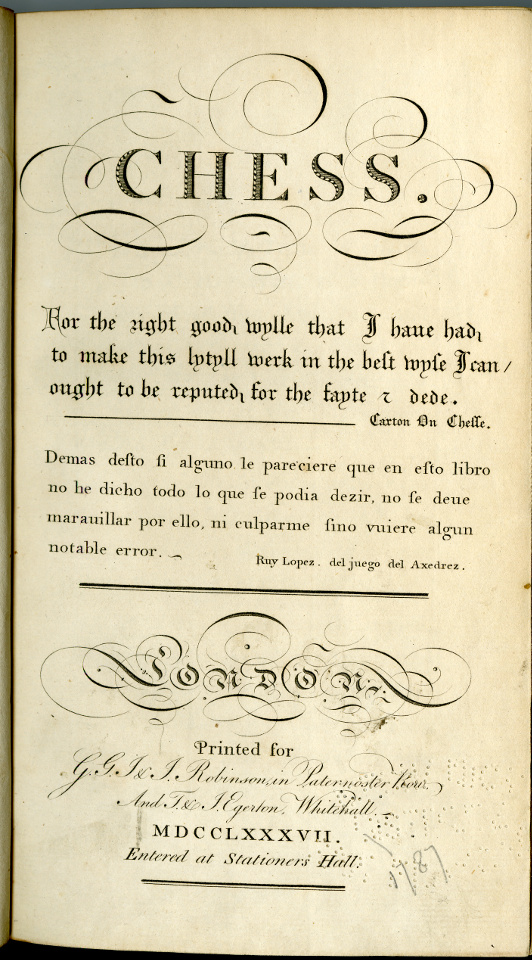 CHESS.
For the right good wylle that I haue had
to make this lytyll werk in the beſt wyſe I can /
ought to be reputed for the fayte ⁊ dede.
Caxton On Cheſſe.
Demas deſto ſi alguno le pareciere que en eſto libro
no he dicho todo lo que ſe podia dezir, no ſe deue
marauillar por ello, ni culparme ſino vuiere algun
notable error.
Ruy Lopez. del juego del Axedrez.
LONDON,
Printed for
G. G. J & J. Robinson, in Paternoster Row.
And T. & J. Egerton, Whitehall.
MDCCLXXXVII.
Entered at Stationers Hall.
1787